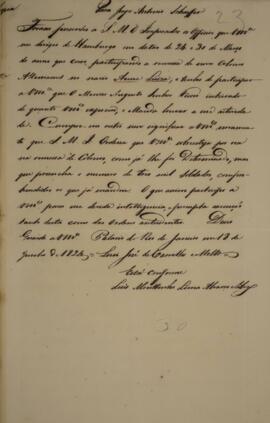 Para Jorge Antonio Schaffer
23
Foram presentes a S. M. O Imperador os Officios que Vmce
me dirigio de Hamburgo em datas de 24 e 30 de Março
do anno que corre participando a remessa de novos Colonos
Allemaens no navio Anna Luiza; e tenho de participar
a Vmce que O Mesmo Augusto Senhor Ficou inteirado
de quanto Vmce expoem, e Manda louvar a sua actividade.
Cumpre em outro sim significar a Vmce
que S. M. I. Ordena que Vmce
na remessa de Colonos, como já lhe foi Determinado,
que preencha o numero de tres mil soldados,
os que já mandou. O que assim participo a
Vmce para sua devida intelligencia, e prompta execução
tanto desta como das Ordens antecedentes. Deos
Guarde a Vmce Palacio do Rio de Janeiro em 12 de
Junho de 1824 = Luis José de Carvalho e Mello =
Está conforme
Luis Moutinho Lima Alvares e Silva